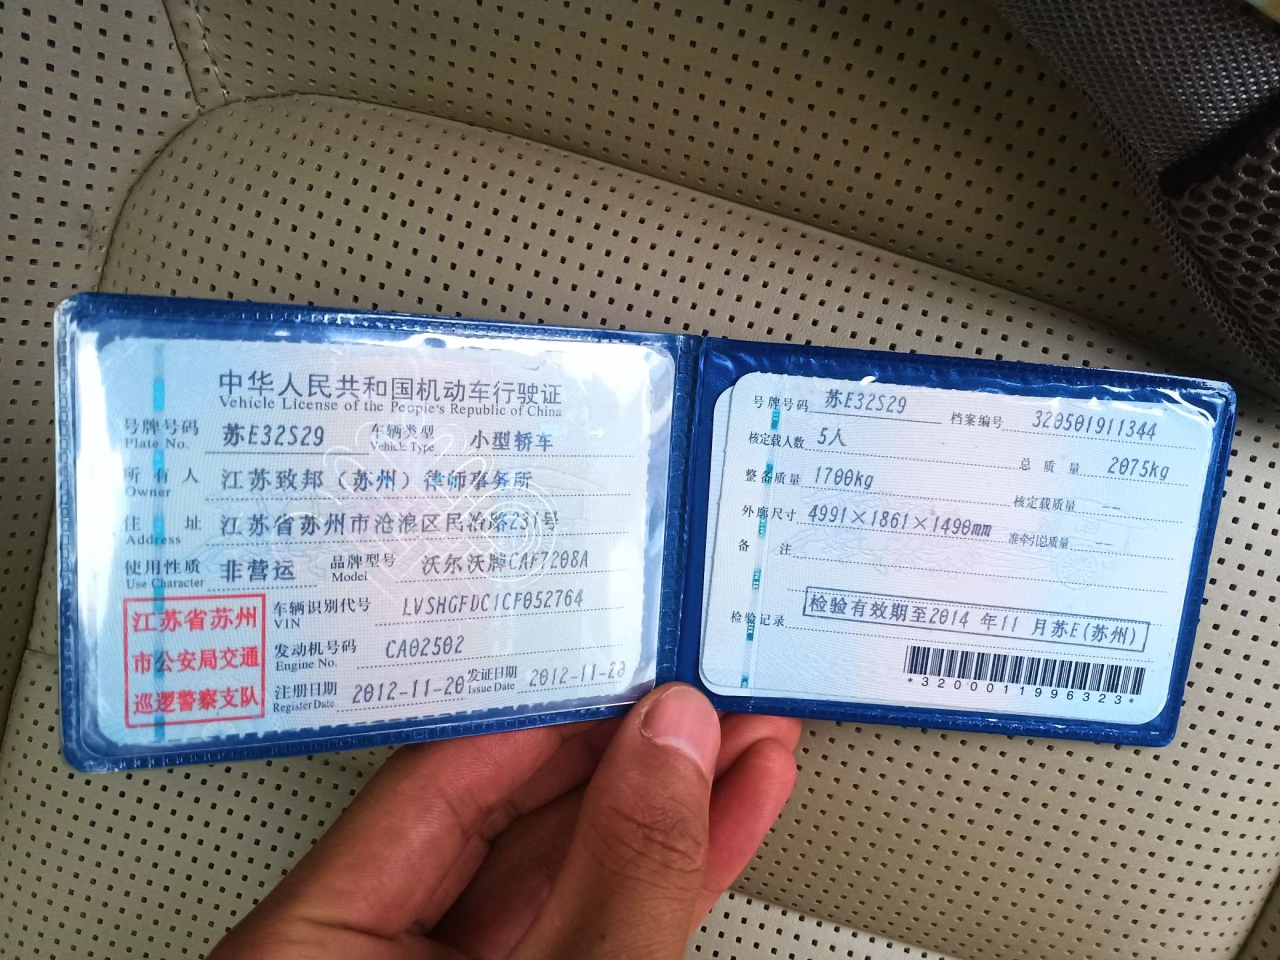 中华人民共和国机动车行驶证
Vehicle License of the People's Republic of China
号牌号码 苏E32S29 车辆类型 小型轿车
Plate No. Vehicle Type
所有人 江苏致邦（苏州）律师事务所
Owner
住址 江苏省苏州市沧浪区民治路231号
Address
使用性质 非营运 品牌型号 沃尔沃牌CAF7208A
Use Character Model
江苏省苏州
市公安局交通
巡逻警察支队
车辆识别代号 LVSHGFDC1CF052764
VIN
发动机号码 CA02502
Engine No.
注册日期 2012-11-20 发证日期 2012-11-20
Register Date Issue Date
号牌号码 苏E32S29 档案编号 320501911344
核定载人数 5人 总质量 2075kg
整备质量 1700kg 核定载质量 --
外廓尺寸 4991×1861×1490mm 准牵引总质量 --
备注
检验记录 检验有效期至2014年11月苏E(苏州)
*3200011996323*